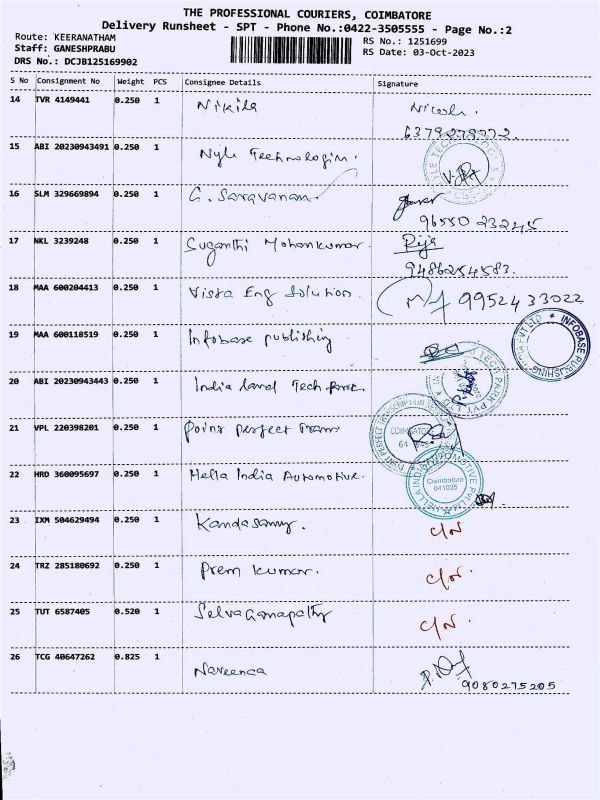 THE PROFESSIONAL COURIERS, COIMBATORE
Delivery Runsheet - SPT - Phone No.:0422-3505555 - Page No.:2
Route: KEERANATHAM
RS No.: 1251699
Staff: GANESHPRABU
RS Date: 03-Oct-2023
DRS No.: DCJB125169902
S No Consignment No Weight PCS Consignee Details Signature
14 TVR 4149441 0.250 1 Nikila
15 ABI 20230943491 0.250 1 Nyle Technologies.
16 SLM 329669894 0.250 1 G. Saravanan.
96550 23245
17 NKL 3239248 0.250 1 Suganthi Mohankumar.
9486254583.
18 MAA 600204413 0.250 1 Vista Eng Solution. 9952433022
19 MAA 600118519 0.250 1 Infobase publishing
INFOBASE PUBLISHING PVT LTD
20 ABI 20230943443 0.250 1 India land Tech Park.
TECH PARK PVT L
21 VPL 220398201 0.250 1 Point perfect Trans
22 HRD 360095697 0.250 1 Hella India Automotive.
HELLA INDIA AUTOMOTIVE
Coimbatore
641035
23 IXM 504629494 0.250 1 Kandasamy. C/N
24 TRZ 285180692 0.250 1 Prem kumar. C/N.
25 TUT 6587405 0.520 1 SelvaGanapathy C/N.
26 TCG 40647262 0.825 1 Naveenaa
9080275205